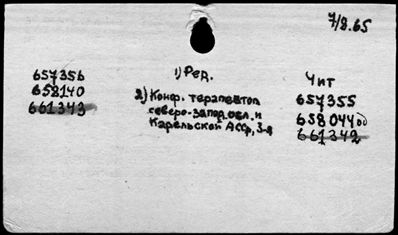 7/8.65
1) Ред.
Чит
657356
658140
661343
2) Конф. терапевтов
северо-запад. обл. и
Карельской АССР, 3-я
657355
658044
661342